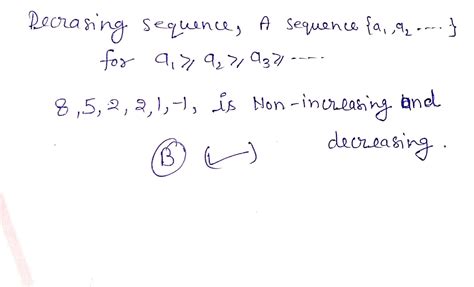 Decrasing sequence, A sequence {a₁, a₂ ....}
for a₁ ≥ a₂ ≥ a₃ ≥ ....
8, 5, 2, 2, 1, -1, is Non-increasing and
decreasing.
B (✓)